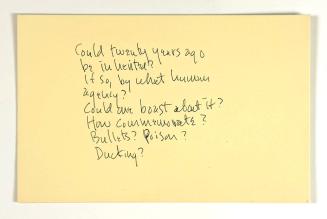 Could twenty years ago
be inherited?
If so, by what human
agency?
Could one boast about it?
How commemorate?
Bullets? Poison?
Ducking?